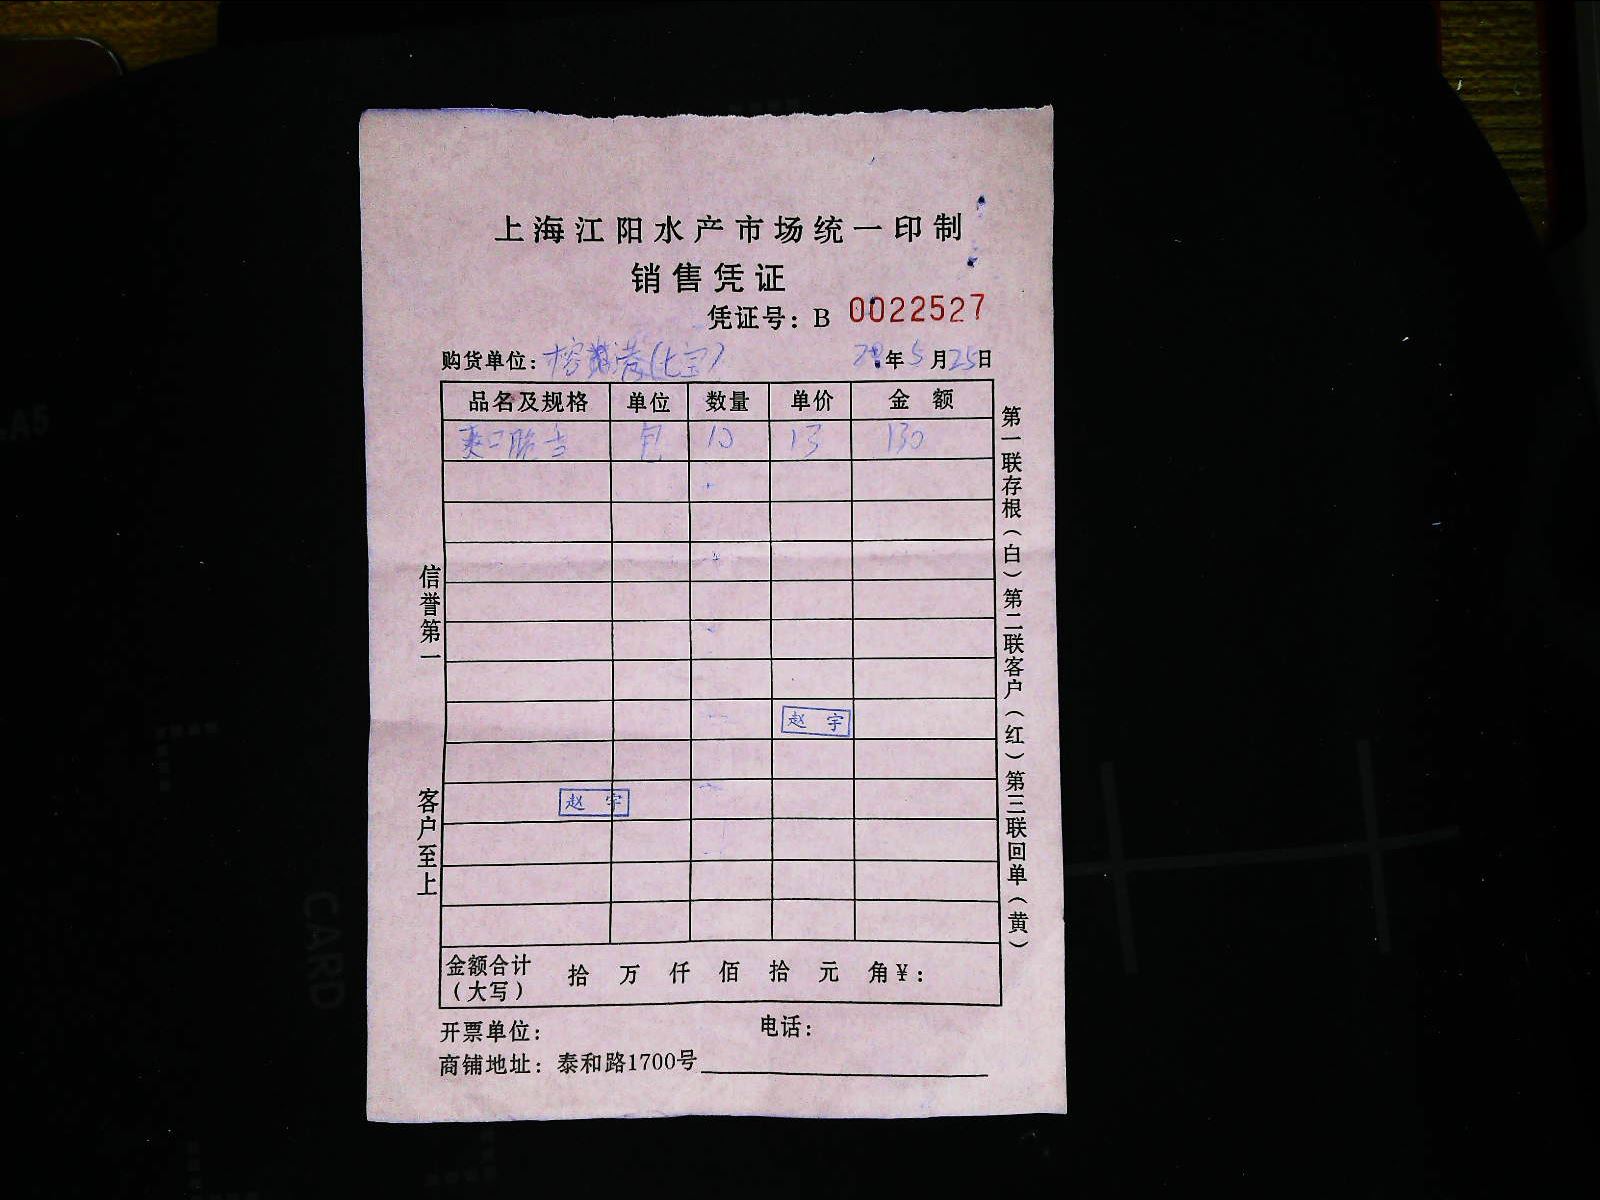 上海江阳水产市场统一印制
销售凭证
凭证号：B 0022527
购货单位： 年5月25日
品名及规格 单位 数量 单价 金额
包 10 13 130
赵宇
赵宇
金额合计（大写） 拾 万 仟 佰 拾 元 角 ¥：
开票单位： 电话：
商铺地址：泰和路1700号
信誉第一
客户至上
第一联存根（白）第二联客户（红）第三联回单（黄）
CARD
A5